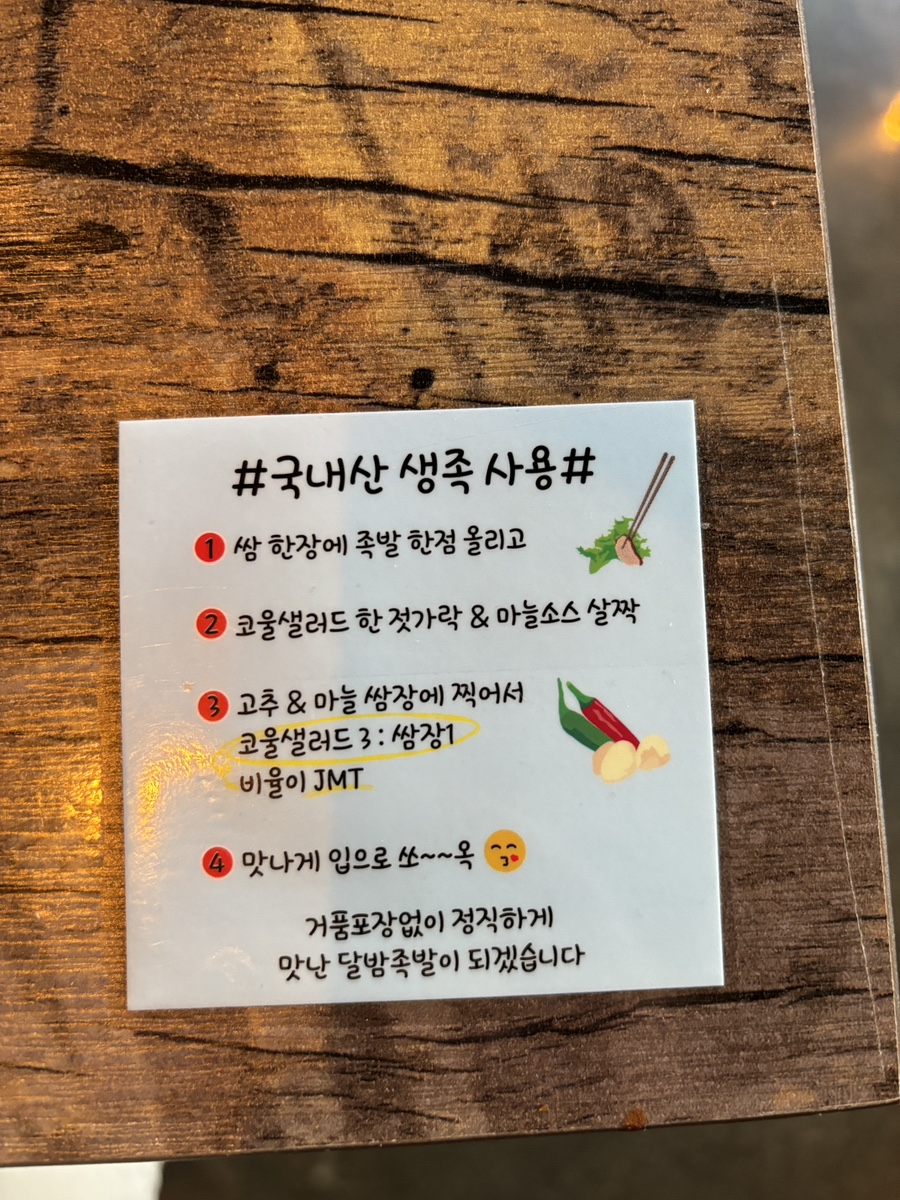 #국내산 생족 사용#
1 쌈 한장에 족발 한점 올리고
2 코울샐러드 한 젓가락 & 마늘소스 살짝
3 고추 & 마늘 쌈장에 찍어서
코울샐러드 3 : 쌈장1
비율이 JMT
4 맛나게 입으로 쏘~~옥
거품포장없이 정직하게
맛난 달밤족발이 되겠습니다